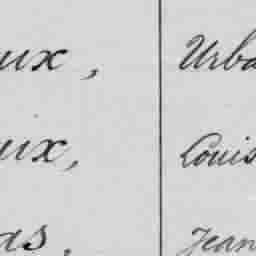 ux, Urba
ux, Louis
as. Jean